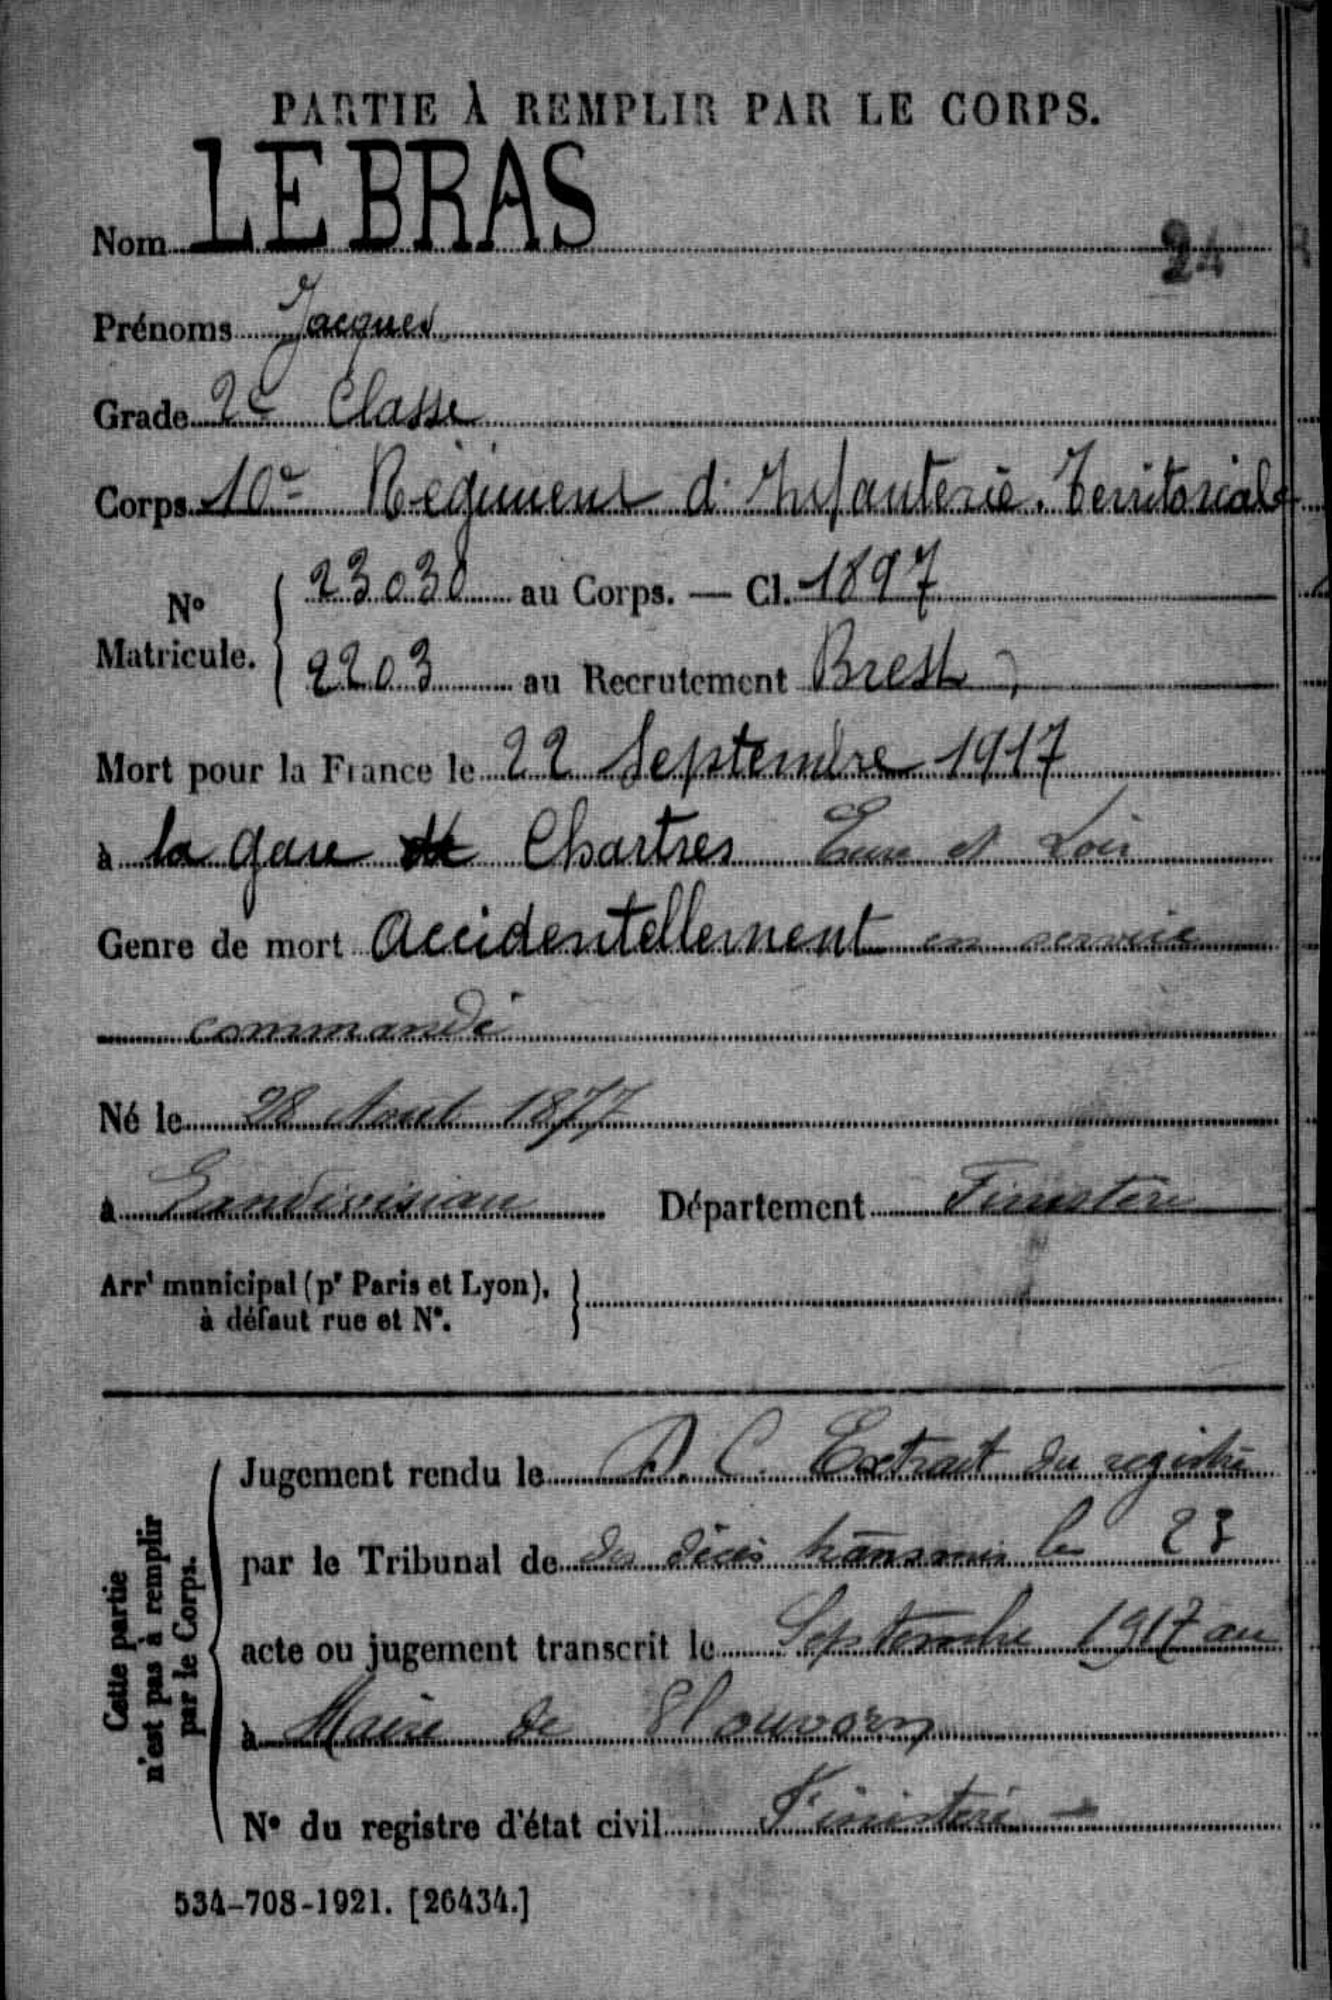 PARTIE À REMPLIR PAR LE CORPS.
Nom LE BRAS
24
Prénoms Jacques
Grade 2e Classe
Corps 10e Régiment d'Infanterie. Territoriale
No Matricule. 23030 au Corps. — Cl. 1897
2203 au Recrutement Brest
Mort pour la France le 22 Septembre 1917
à la gare de Chartres Eure et Loir
Genre de mort Accidentellement en service
commandé
Né le 28 Aout 1877
à Landivisiau Département Finistère
Arrt municipal (pr Paris et Lyon),
à défaut rue et No.
Cette partie
n'est pas à remplir
par le Corps.
Jugement rendu le D. C. Extrait du registre
par le Tribunal de des décès transmis le 23
acte ou jugement transcrit le Septembre 1917 au
à Maire de Plouvorn
No du registre d'état civil Finistère —
534-708-1921. [26434.]